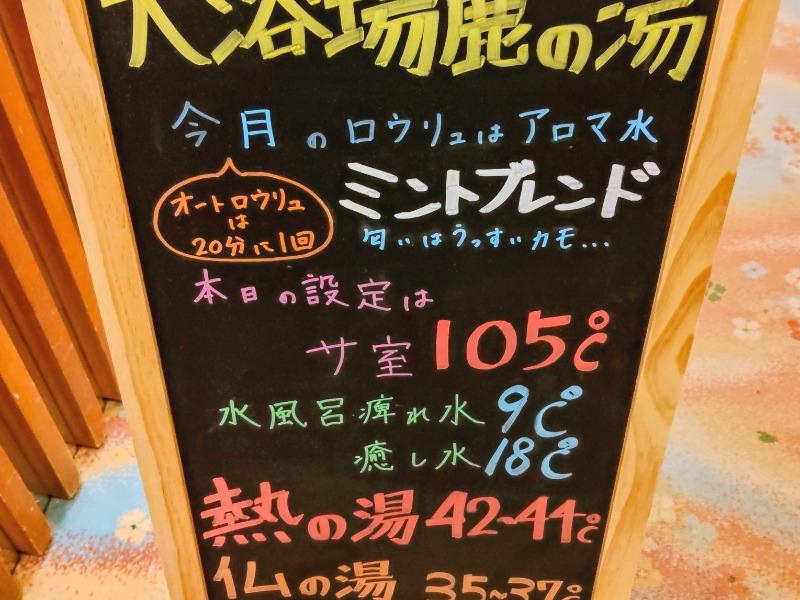 大浴場鹿の湯
今月のロウリュはアロマ水
オートロウリュ
は
20分に1回
ミントブレンド
匂いはうっすいカモ...
本日の設定は
サ室 105℃
水風呂痺れ水 9℃
癒し水 18℃
熱の湯 42~44℃
仏の湯 35~37℃